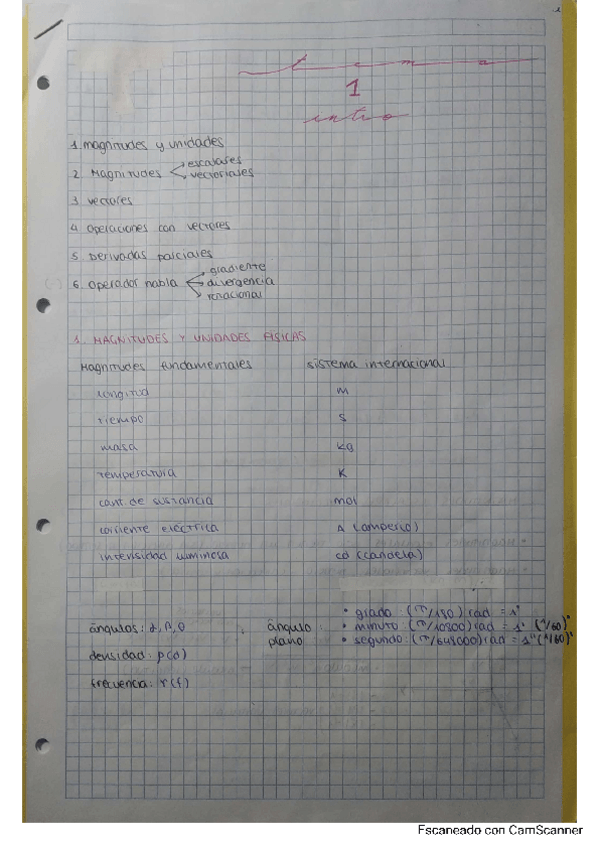 tema
1
intro
1. magnitudes y unidades
2. Magnitudes escalares
vectoriales
3 vectores
4 operaciones con vectores
5 Derivadas parciales
6. operador nabla gradiente
divergencia
rotacional
1. MAGNITUDES Y UNIDADES FÍSICAS
Magnitudes fundamentales sistema internacional
longitud m
tiempo s
masa kg
temperatura K
cant. de sustancia mol
corriente eléctrica A (amperio)
intensidad luminosa cd (candela)
ángulos: α, β, θ
densidad: ρ(d)
frecuencia: γ(f)
ángulo plano:
• grado: (π/180) rad = 1°
• minuto: (π/10800) rad = 1' (1/60)°
• segundo: (π/648000) rad = 1" (1/60)'
Escaneado con CamScanner